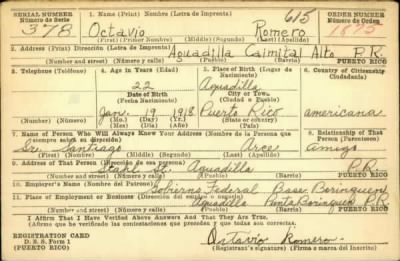 SERIAL NUMBER
Número de Serie
378
1. Name (Print) Nombre (Letra de Imprenta)
615
Octavio Romero
(First) (Primer Nombre) (Middle) (Segundo) (Last) (Apellido)
ORDER NUMBER
Número de Orden
2. Address (Print) Dirección (Letra de Imprenta)
Aguadilla Caimital Alto P.R.
(Number and street) (Número y calle) (Barrio) PUERTO RICO
3. Telephone (Teléfono)
4. Age in Years (Edad)
22
Date of Birth
(Fecha Nacimiento)
Jan. 19 1918
(Mo.) (Day) (Yr.)
(Mes) (Día) (Año)
5. Place of Birth (Lugar de Nacimiento)
Aguadilla
City or Town
(Ciudad o Pueblo)
Puerto Rico
(State or country)
(Estado o país)
6. Country of Citizenship
(Ciudadanía)
americana
7. Name of Person Who Will Always Know Your Address (Nombre de la Persona que siempre sabrá su dirección)
Sr. Santiago Arce
(First) (Primer Nombre) (Middle) (Segundo) (Last) (Apellido)
8. Relationship of That Person (Parentesco)
amigo
9. Address of That Person (Dirección de esa persona)
Stahl St. Aguadilla P.R.
(Number and street) (Número y calle) (Barrio) PUERTO RICO
10. Employer's Name (Patrono)
Gobierno Federal Base Borinquen
11. Place of Employment or Business (Dirección del empleo o negocio)
Aguadilla Punta Borinquen P.R.
(Number and street) (Número y calle) (Barrio) PUERTO RICO
I Affirm That I Have Verified Above Answers And That They Are True.
REGISTRATION CARD
D. S. S. Form 1
(PUERTO RICO)
Octavio Romero
(Registrant's signature) (Firma o marca del Inscrito)